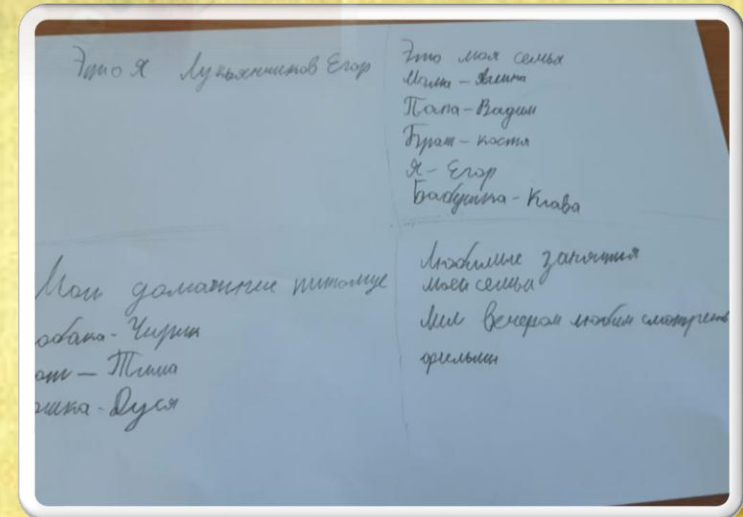 Это Я Лукьянчиков Егор
Это моя семья
Мама - Алина
Папа - Вадим
Брат - Костя
Я - Егор
Бабушка - Клава
Мои домашние питомце
обака - Чирик
от - Тиша
ошка - Дуся
Любимые занятия
моей семьи
Мы вечером любим смотреть
фильмы